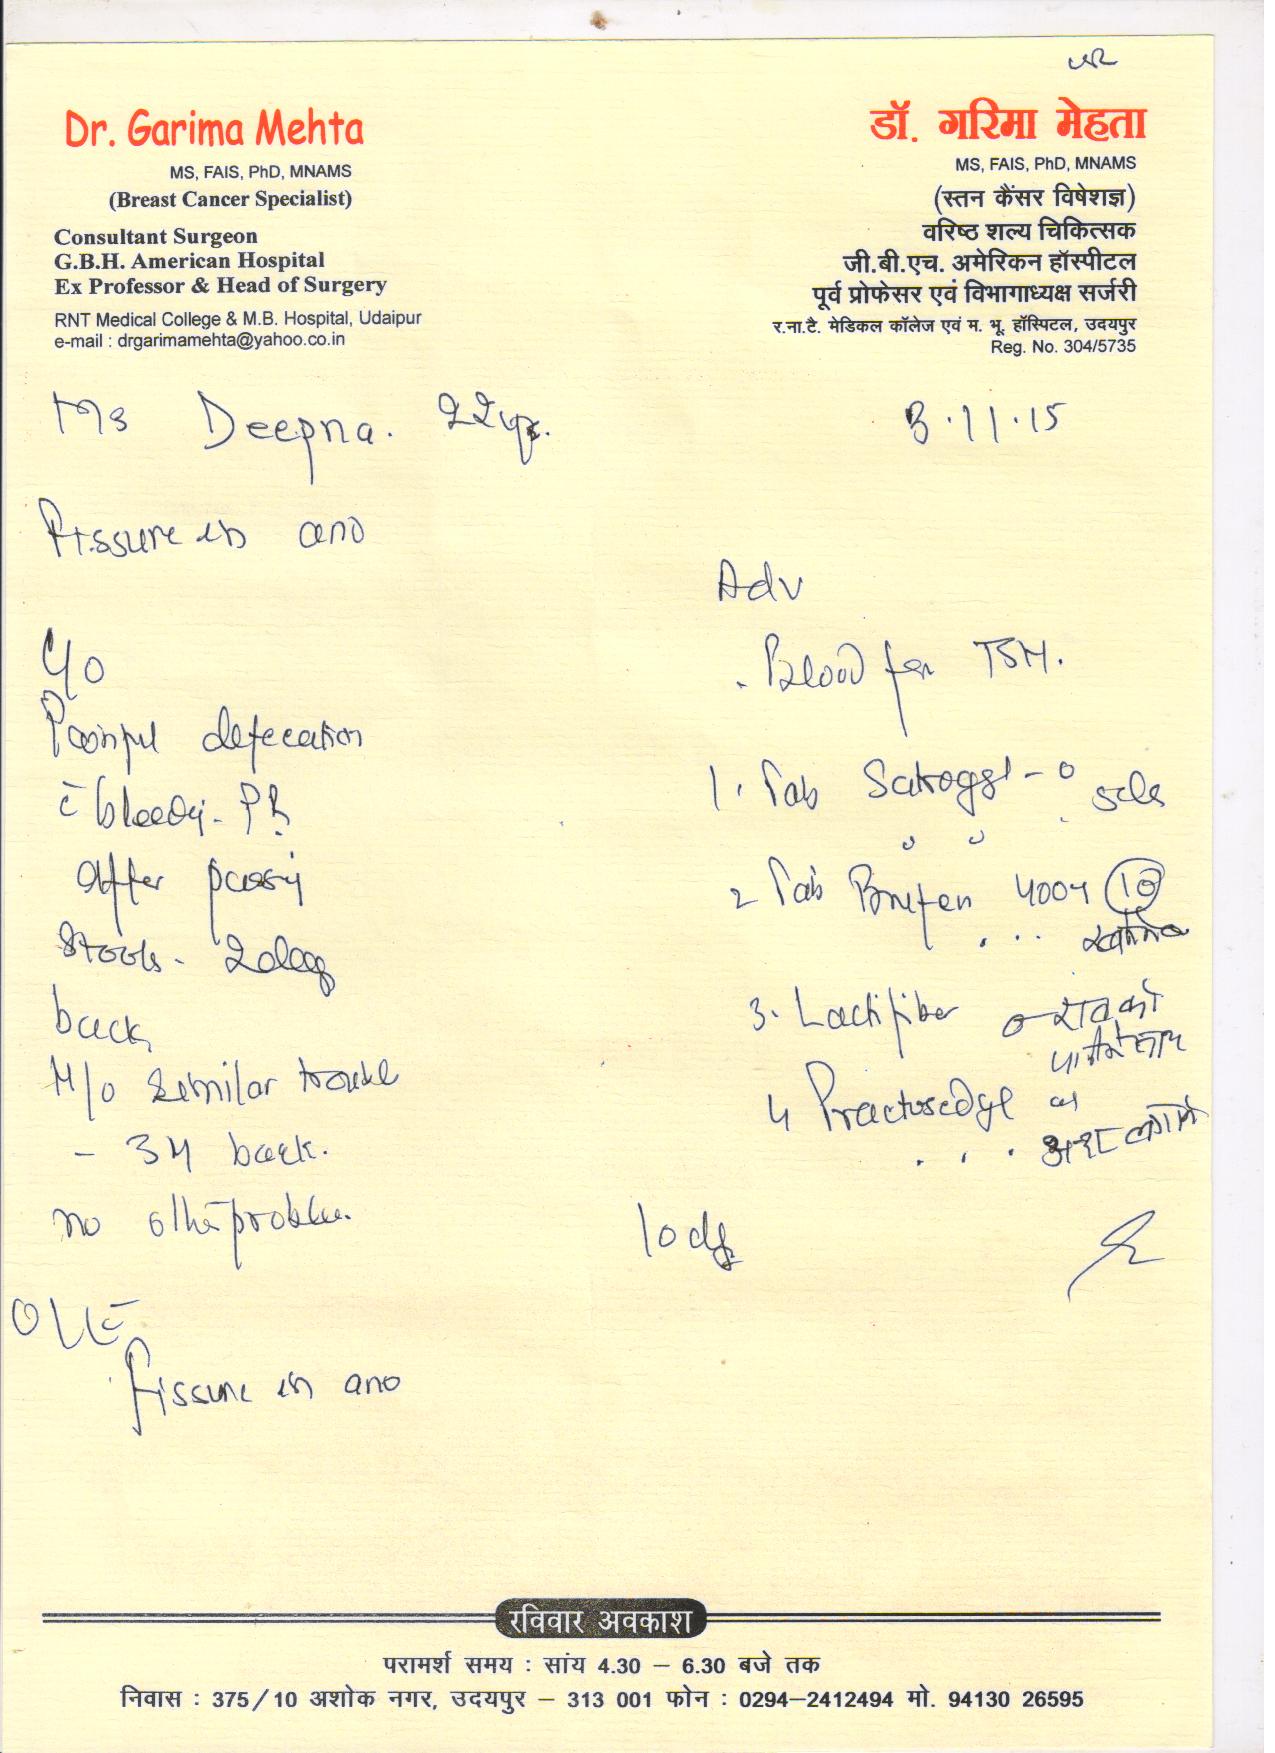 Dr. Garima Mehta
MS, FAIS, PhD, MNAMS
(Breast Cancer Specialist)
Consultant Surgeon
G.B.H. American Hospital
Ex Professor & Head of Surgery
RNT Medical College & M.B. Hospital, Udaipur
e-mail : drgarimamehta@yahoo.co.in
डॉ. गरिमा मेहता
MS, FAIS, PhD, MNAMS
(स्तन कैंसर विषेशज्ञ)
वरिष्ठ शल्य चिकित्सक
जी.बी.एच. अमेरिकन हॉस्पीटल
पूर्व प्रोफेसर एवं विभागाध्यक्ष सर्जरी
र.ना.टै. मेडिकल कॉलेज एवं म. भू. हॉस्पिटल, उदयपुर
Reg. No. 304/5735
Ms Deepna. 22yr.
3.11.15
Fissure in ano
C/o
Painful defecation
c̄ bleeding PR
after passing
stools - 2 days
back
H/o similar trouble
- 3M back.
no other problem.
O/E
Fissure in ano
Adv
. Blood for TSH.
1. Tab
2 Tab Brufen 400 10
3. Lactifiber
4 Proctosedyl
10 dys
रविवार अवकाश
परामर्श समय : सांय 4.30 – 6.30 बजे तक
निवास : 375/10 अशोक नगर, उदयपुर – 313 001 फोन : 0294–2412494 मो. 94130 26595